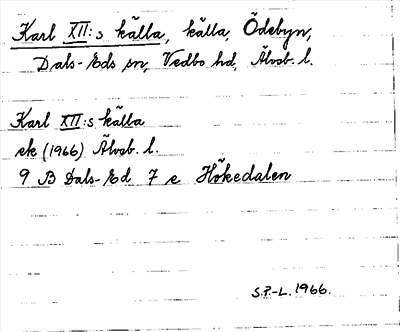 Karl XII:s källa, källa, Ödebyn,
Dals-Eds sn, Vedbo hd, Älvsb. l.
Karl XII:s källa
ek (1966) Älvsb. l.
9 B Dals-Ed 7 e Hökedalen
S.P.-L. 1966.